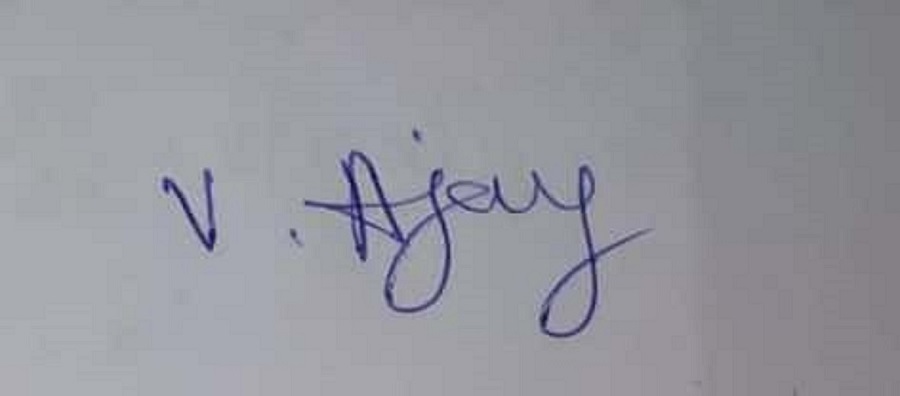 V. Ajay